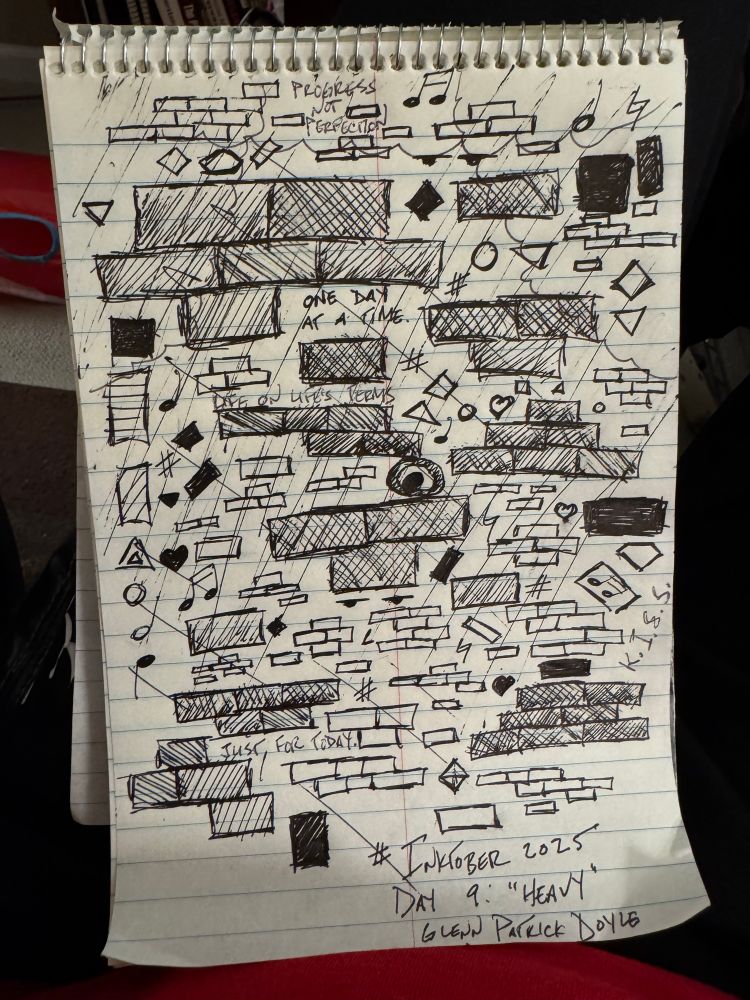 PROGRESS
NOT
PERFECTION
ONE DAY
AT A TIME.
LIFE ON LIFE'S TERMS
K.I.S.S.
JUST FOR TODAY.
# INKTOBER 2025
DAY 9: "HEAVY"
GLENN PATRICK DOYLE